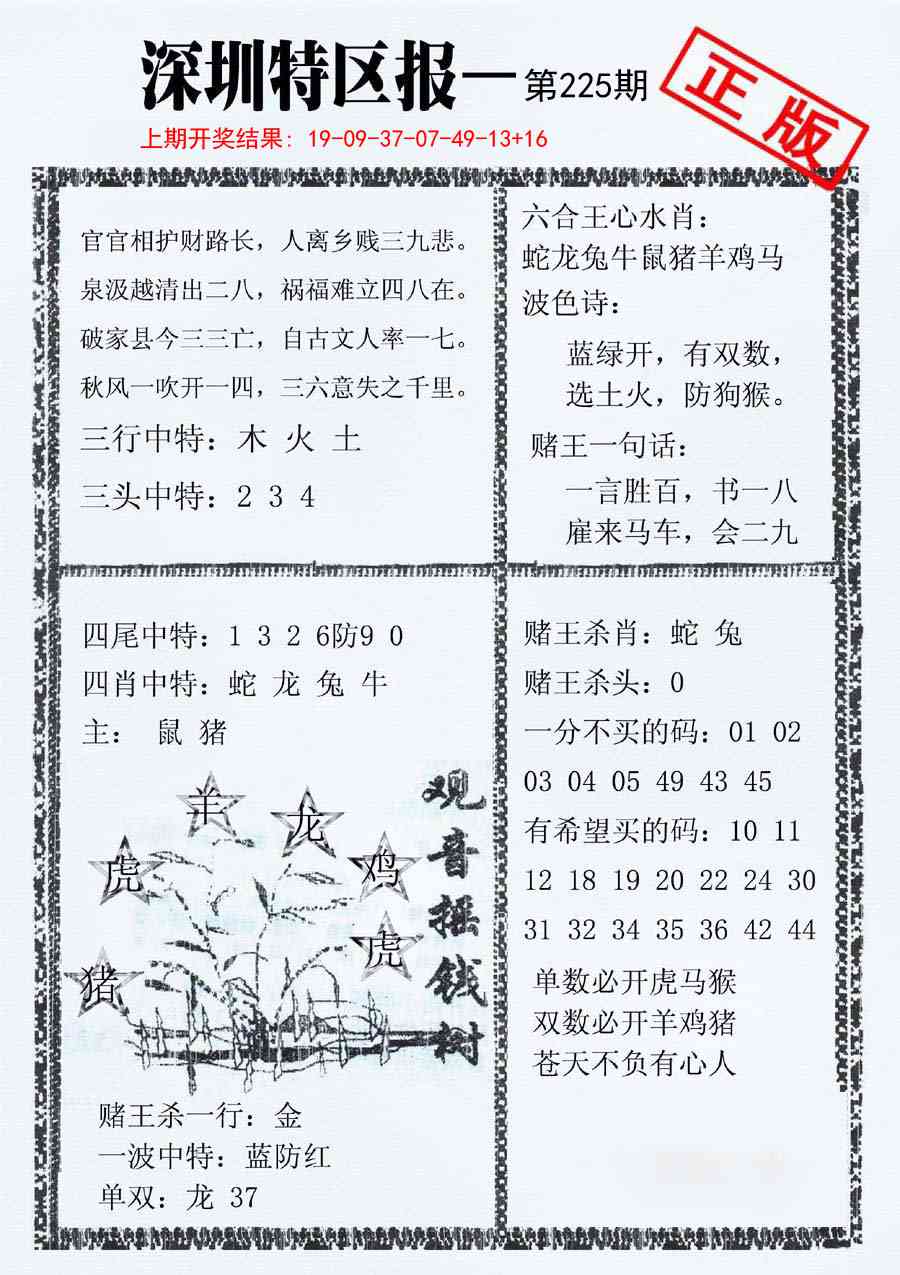 深圳特区报—第225期
正版
上期开奖结果：19-09-37-07-49-13+16
官官相护财路长，人离乡贱三九悲。
泉汲越清出二八，祸福难立四八在。
破家县今三三亡，自古文人率一七。
秋风一吹开一四，三六意失之千里。
三行中特：木 火 土
三头中特：2 3 4
六合王心水肖：
蛇龙兔牛鼠猪羊鸡马
波色诗：
蓝绿开，有双数，
选土火，防狗猴。
赌王一句话：
一言胜百，书一八
雇来马车，会二九
四尾中特：1 3 2 6防9 0
四肖中特：蛇 龙 兔 牛
主： 鼠 猪
羊
龙
虎
鸡
虎
猪
观音摇钱树
赌王杀一行：金
一波中特：蓝防红
单双：龙 37
赌王杀肖：蛇 兔
赌王杀头：0
一分不买的码：01 02
03 04 05 49 43 45
有希望买的码：10 11
12 18 19 20 22 24 30
31 32 34 35 36 42 44
单数必开虎马猴
双数必开羊鸡猪
苍天不负有心人